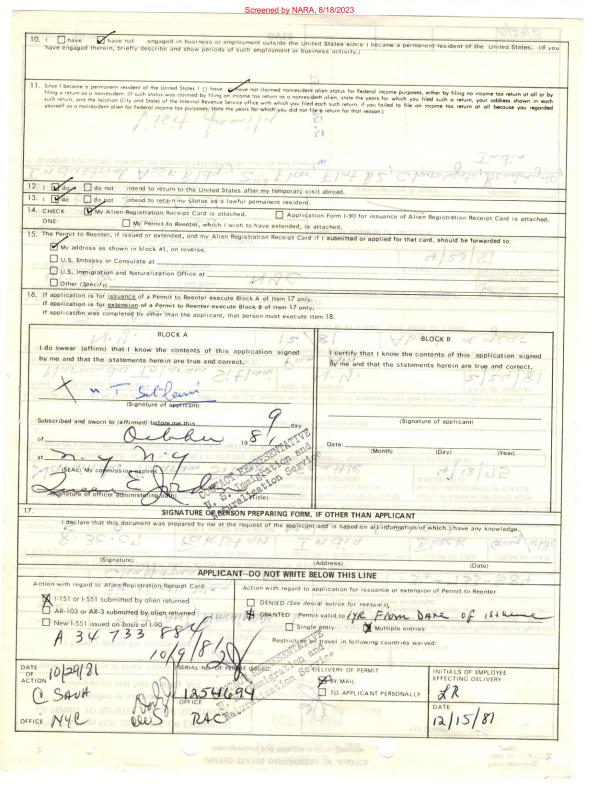 Screened by NARA, 8/18/2023
10. I ☐ have ☑ have not engaged in business or employment outside the United States since I became a permanent resident of the United States. (If you
have engaged therein, briefly describe and show periods of such employment or business activity.)
11. Since I became a permanent resident of the United States I ☐ have ☑ have not claimed nonresident alien status for Federal income purposes, either by filing no income tax return at all or by
filing a return as a nonresident. (If such status was claimed by filing an income tax return as a nonresident alien, state the years for which you filed such a return, your address shown in each
such return, and the location (City and State) of the Internal Revenue Service office with which you filed each such return; if you failed to file an income tax return at all because you regarded
yourself as a nonresident alien for Federal income tax purposes, state the years for which you did not file a return for that reason.)
12. I ☑ do ☐ do not intend to return to the United States after my temporary visit abroad.
13. I ☑ do ☐ do not intend to retain my status as a lawful permanent resident.
14. CHECK ☑ My Alien Registration Receipt Card is attached. ☐ Application Form I-90 for issuance of Alien Registration Receipt Card is attached.
ONE: ☐ My Permit to Reenter, which I wish to have extended, is attached.
15. The Permit to Reenter, if issued or extended, and my Alien Registration Receipt Card if I submitted or applied for that card, should be forwarded to:
☑ My address as shown in block #1, on reverse.
☐ U.S. Embassy or Consulate at
☐ U.S. Immigration and Naturalization Office at
☐ Other (Specify)
16. If application is for issuance of a Permit to Reenter execute Block A of Item 17 only.
If application is for extension of a Permit to Reenter execute Block B of Item 17 only.
If application was completed by other than the applicant, that person must execute Item 18.
BLOCK A
I do swear (affirm) that I know the contents of this application signed
by me and that the statements herein are true and correct.
X
(Signature of applicant)
Subscribed and sworn to (affirmed) before me this 9 day
of October 1981
at N.Y. N.Y
(SEAL) My commission expires
(Signature of officer administering oath) (Title)
CONTACT REPRESENTATIVE
U. S. Immigration and
Naturalization Service
BLOCK B
I certify that I know the contents of this application signed
by me and that the statements herein are true and correct.
(Signature of applicant)
Date:
(Month) (Day) (Year)
17. SIGNATURE OF PERSON PREPARING FORM, IF OTHER THAN APPLICANT
I declare that this document was prepared by me at the request of the applicant and is based on all information of which I have any knowledge.
(Signature) (Address) (Date)
APPLICANT—DO NOT WRITE BELOW THIS LINE
Action with regard to Alien Registration Receipt Card
☒ I-151 or I-551 submitted by alien returned
☐ AR-103 or AR-3 submitted by alien returned
☐ New I-551 issued on basis of I-90
A 34 733 884
10/9/81
Action with regard to application for issuance or extension of Permit to Reenter
☐ DENIED (See denial notice for reasons),
☒ GRANTED Permit valid to 1YR FROM DATE OF ISSUANCE
☐ Single entry ☒ Multiple entries
Restriction on travel in following countries waived:
CONTACT REPRESENTATIVE
U. S. Immigration and
Naturalization Service
DATE OF ACTION 10/29/81
C SAVA
OFFICE NYC
SERIAL NO. OF PERMIT ISSUED
1254694
OFFICE
RAC
DELIVERY OF PERMIT
☒ BY MAIL
☐ TO APPLICANT PERSONALLY
INITIALS OF EMPLOYEE
EFFECTING DELIVERY
LR
DATE
12/15/81